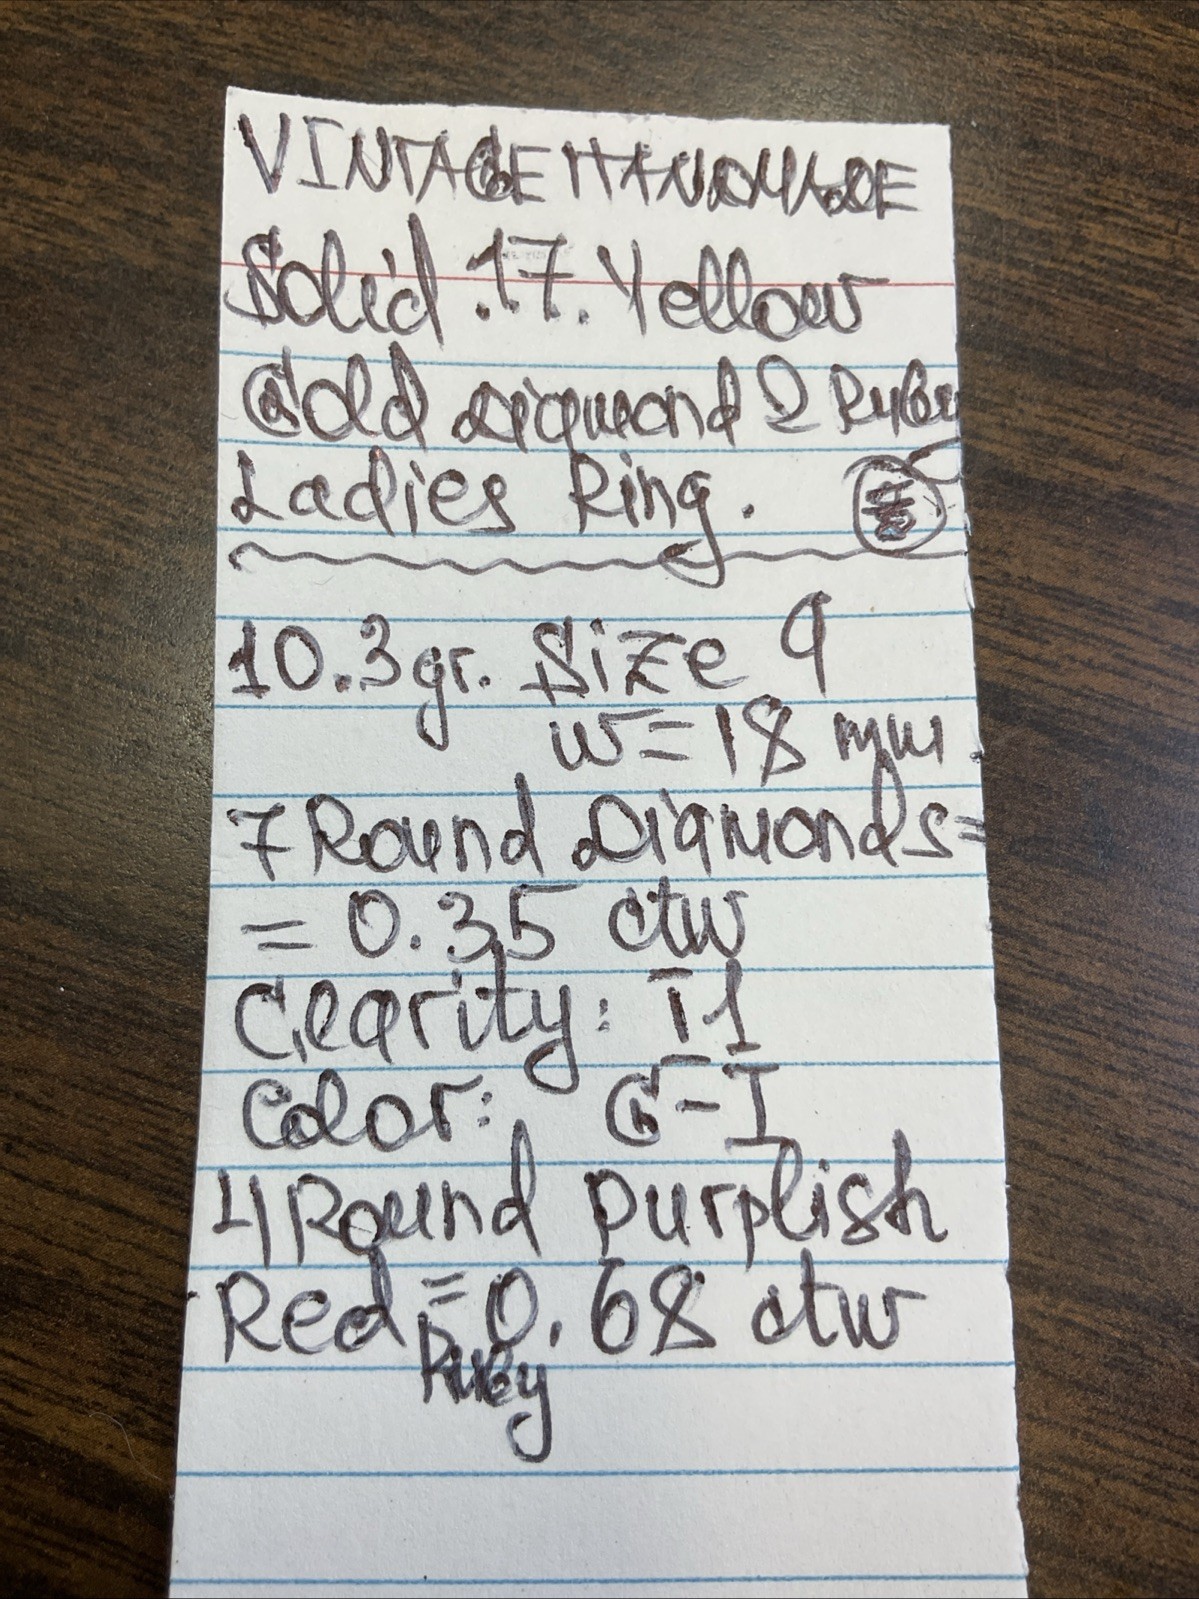 VINTAGE HANDMADE
Solid .17. Yellow
Gold Diamond 2 Ruby
Ladies Ring.
10.3gr. Size 9
w=18 mm.
7 Round Diamonds=
= 0.35 ctw
Clearity: I1
Color: G-I
4 Round purplish
Red = 0.68 ctw
Ruby